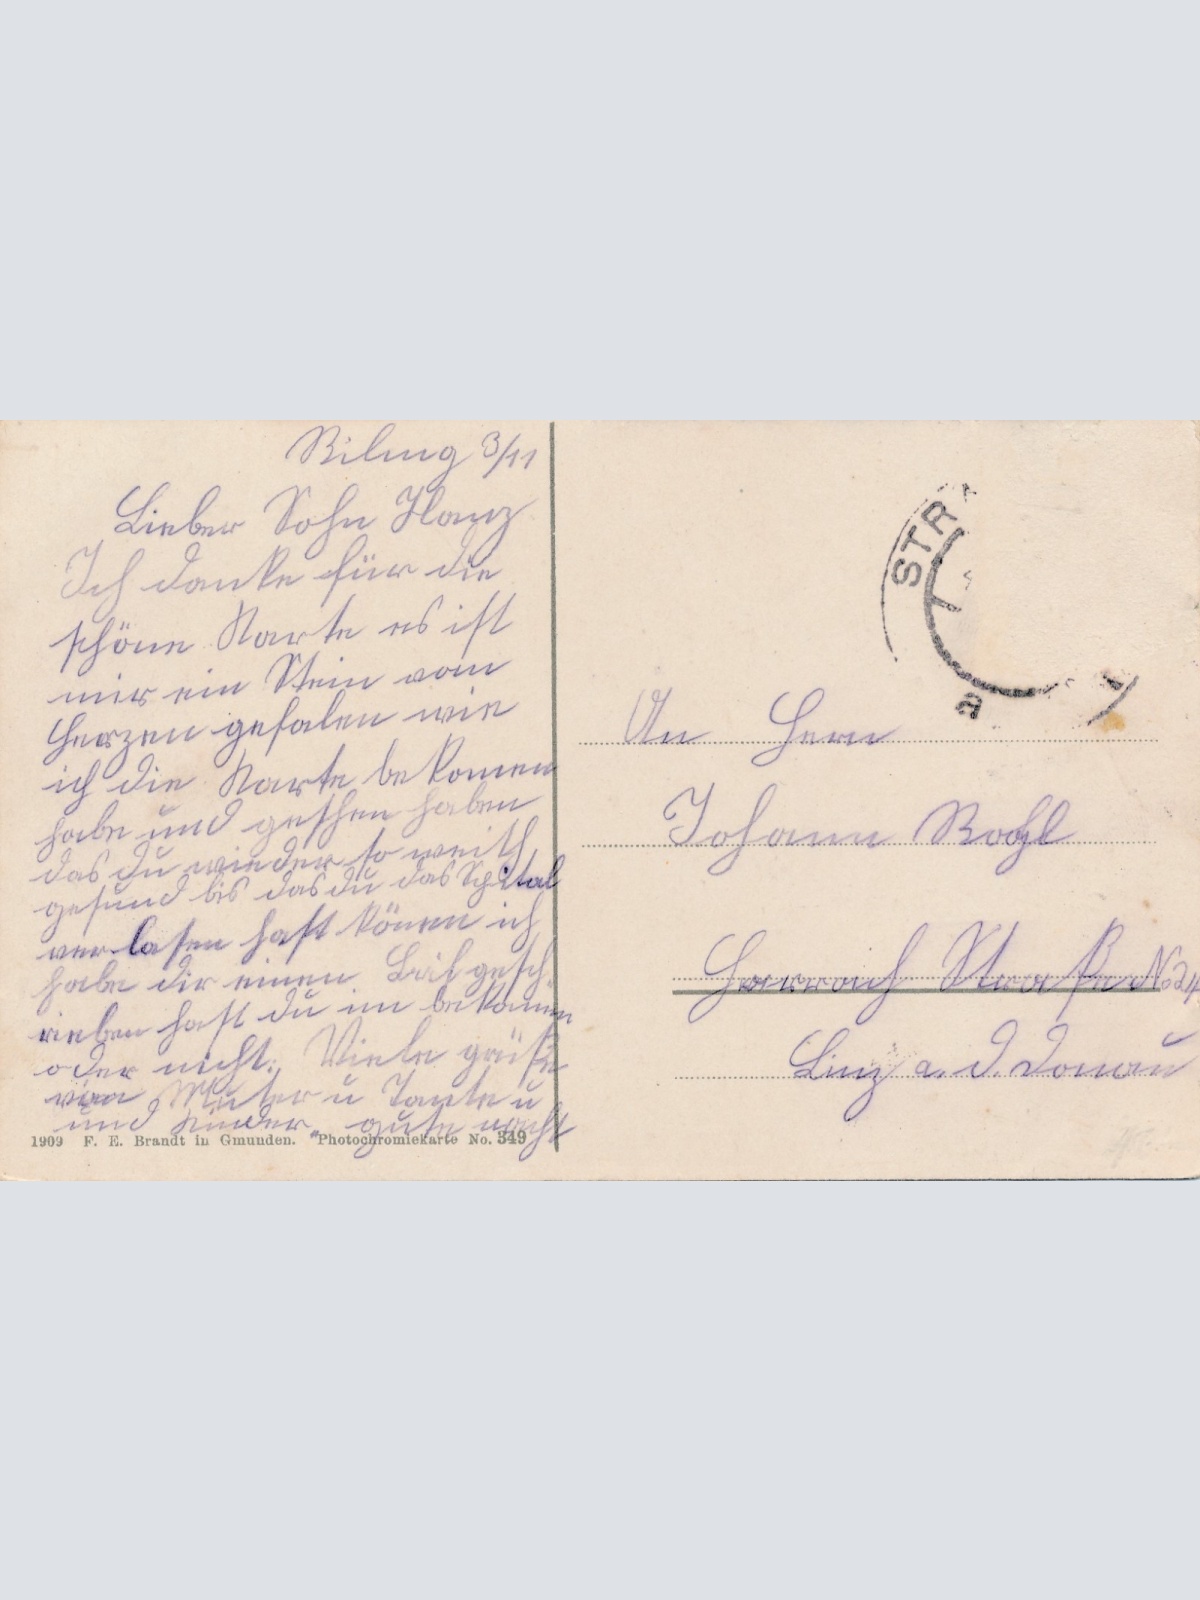 3/11
Lieber Sohn Hanz
Ich danke für die
schöne Karte es ist
mir ein Stein vom
Herzen gefalen wie
ich die Karte bekomen
habe und gesehen haben
das du wieder so weith
gesund bis das du das Spital
verlasen hast könen ich
habe dir einen Brif gesch
rieben hast du im bekomen
oder nicht. Viele grüße
von Muter u Tante u
und Kinder gute nacht
1909 F. E. Brandt in Gmunden. Photochromiekarte No. 349
STR
a
An Herrn
Johann
Harrach Straße No 24
Linz a. d. Donau